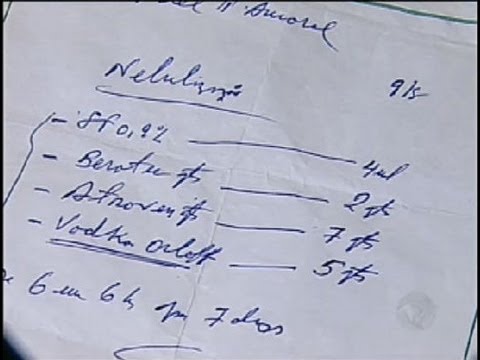 Amaral
Nebulização
- SF 0,9% — 4ml
- Berotec gts — 2 gts
- Atrovent gts — 7 gts
- Vodka Orloff — 5 gts
6 em 6 h por 7 dias